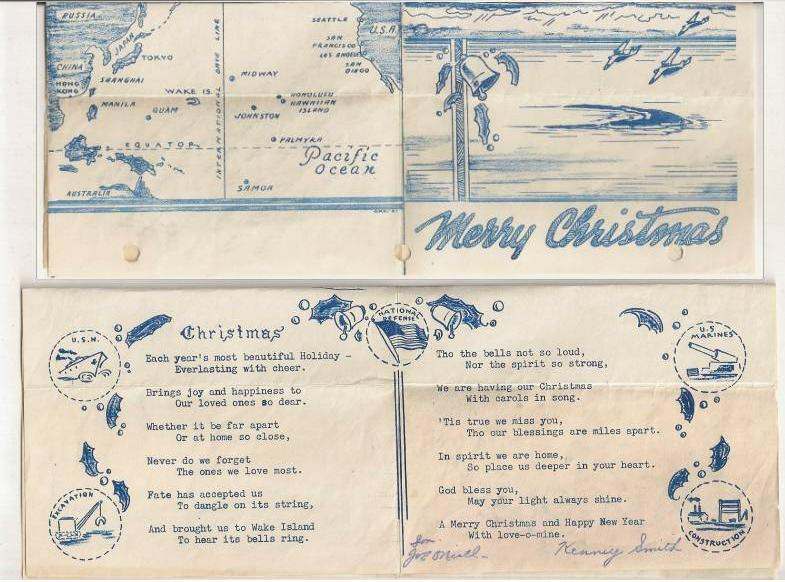 RUSSIA
CHINA
HONG KONG
JAPAN
TOKYO
SHANGHAI
MANILA
GUAM
WAKE IS.
EQUATOR
AUSTRALIA
INTERNATIONAL DATE LINE
SEATTLE
SAN FRANCISCO
LOS ANGELES
SAN DIEGO
U.S.A.
MIDWAY
HONOLULU
HAWAIIAN
ISLAND
JOHNSTON
PALMYRA
Pacific
Ocean
SAMOA
Merry Christmas
U.S.N.
NATIONAL DEFENSE
U.S. MARINES
EXCAVATION
CONSTRUCTION
Christmas
Each year's most beautiful Holiday -
Everlasting with cheer.
Brings joy and happiness to
Our loved ones so dear.
Whether it be far apart
Or at home so close,
Never do we forget
The ones we love most.
Fate has accepted us
To dangle on its string,
And brought us to Wake Island
To hear its bells ring.
Tho the bells not so loud,
Nor the spirit so strong,
We are having our Christmas
With carols in song.
'Tis true we miss you,
Tho our blessings are miles apart.
In spirit we are home,
So place us deeper in your heart.
God bless you,
May your light always shine.
A Merry Christmas and Happy New Year
With love-o-mine.
Kenney Smith